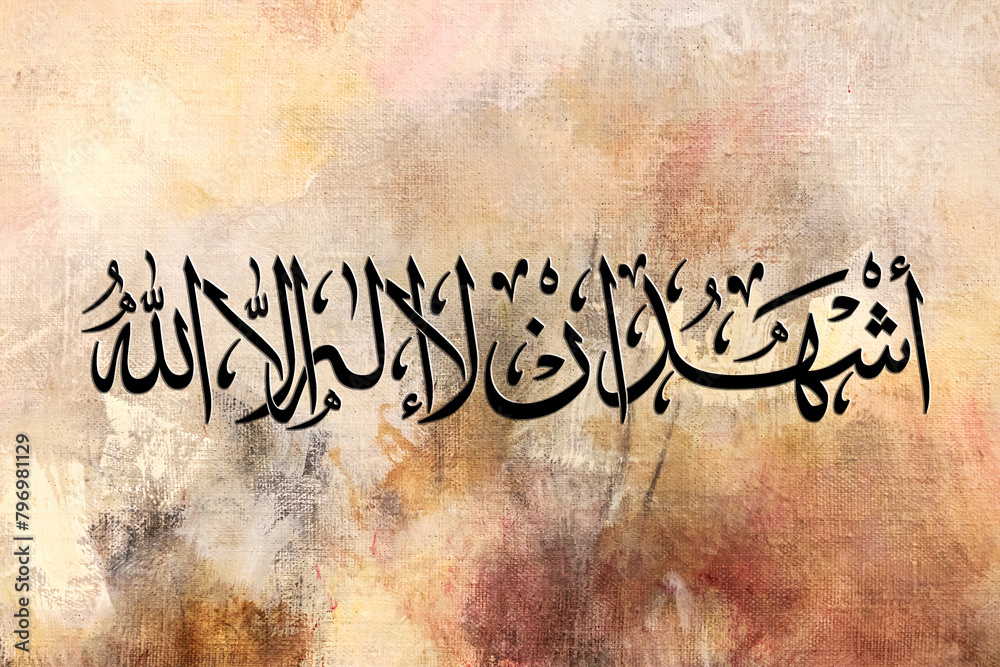 أشهد ان لا إله إلا الله
Adobe Stock | #796981129